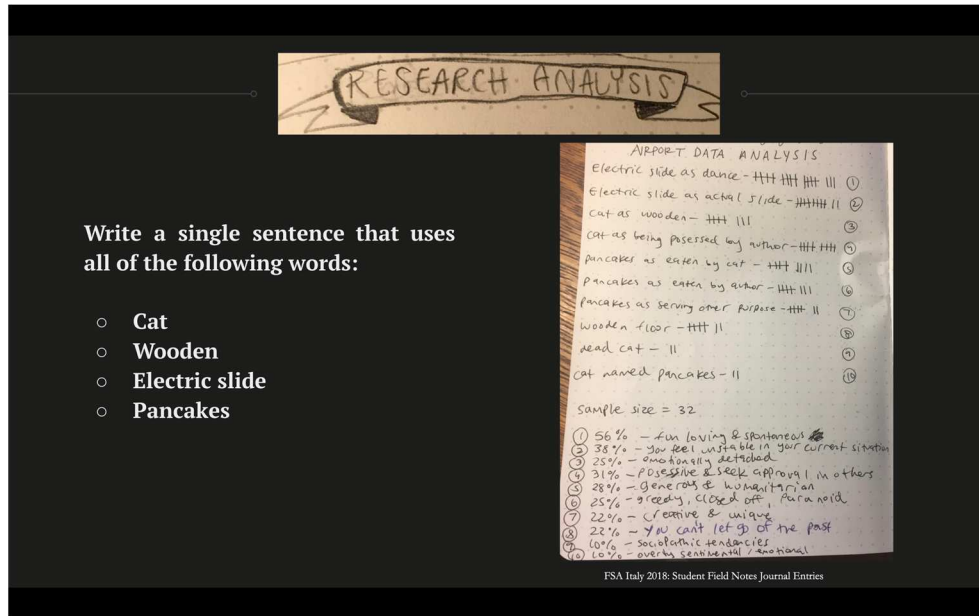 RESEARCH ANALYSIS
Write a single sentence that uses
all of the following words:
○ Cat
○ Wooden
○ Electric slide
○ Pancakes
AIRPORT DATA ANALYSIS
Electric slide as dance - 卌 卌 卌 ||| ①
Electric slide as actual slide - 卌卌 || ②
cat as wooden - 卌 ||| ③
cat as being posessed by author - 卌 卌 ④
pancakes as eaten by cat - 卌 |||| ⑤
pancakes as eaten by author - 卌 ||| ⑥
pancakes as serving other purpose - 卌 || ⑦
wooden floor - 卌 || ⑧
dead cat - || ⑨
cat named pancakes - || ⑩
sample size = 32
① 56% - fun loving & spontaneous
② 38% - you feel unstable in your current situation
③ 25% - emotionally detached
④ 31% - posessive & seek approval in others
⑤ 28% - generous & humanitarian
⑥ 25% - greedy, closed off, paranoid
⑦ 22% - creative & unique
⑧ 22% - you can't let go of the past
⑨ 10% - sociopathic tendencies
⑩ 10% - overly sentimental / emotional
FSA Italy 2018: Student Field Notes Journal Entries